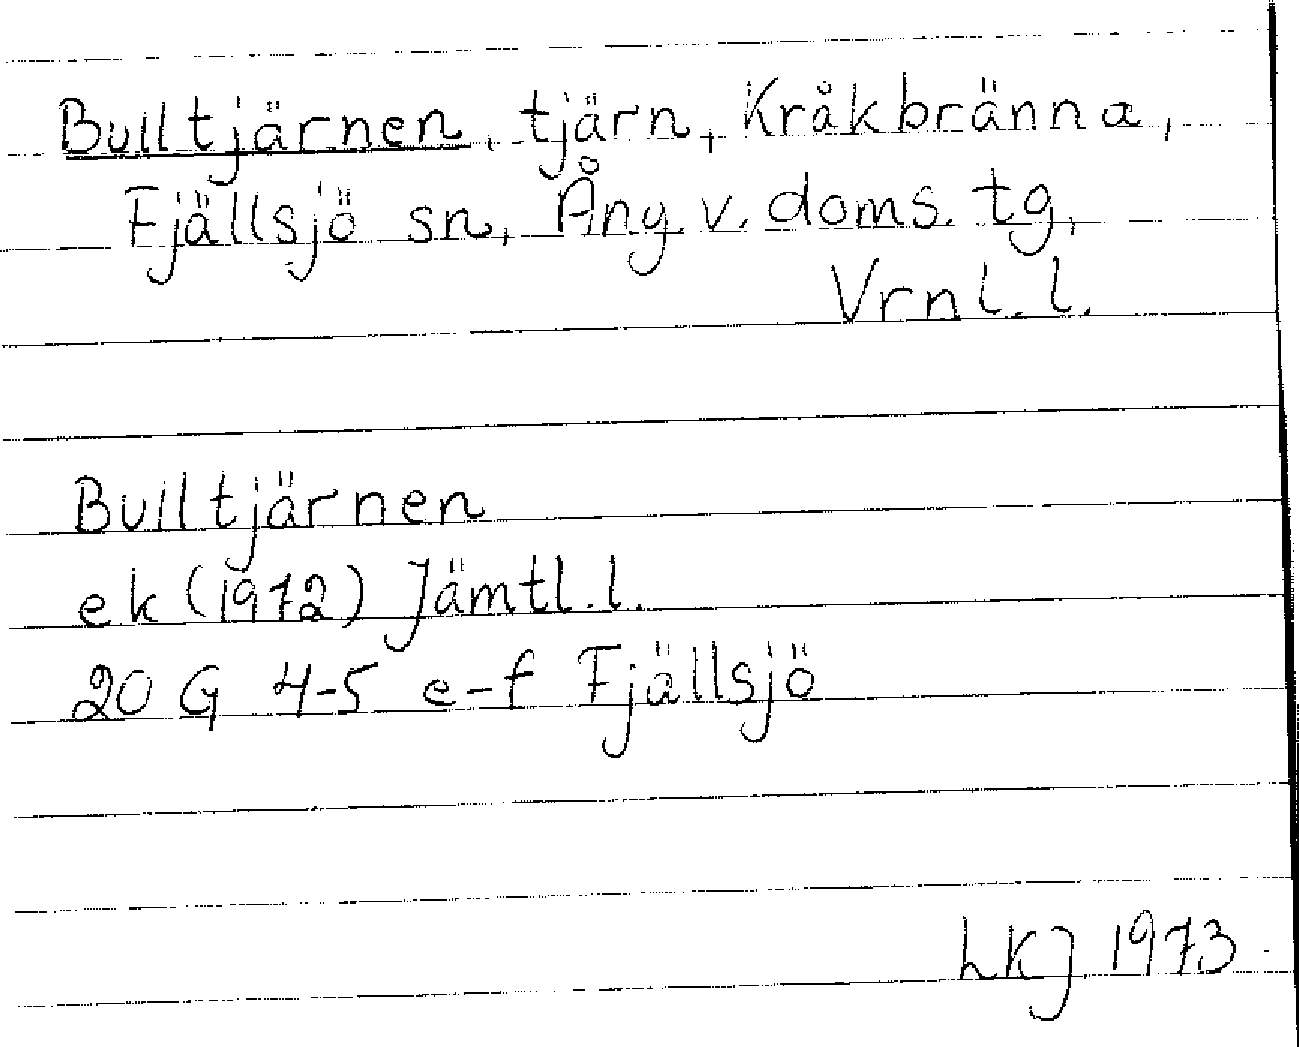 Bulltjärnen, tjärn, Kråkbränna,
Fjällsjö sn, Ång. v. doms. tg,
Vrnl. l.
Bulltjärnen
ek (1972) Jämtl. l.
20 G 4-5 e-f Fjällsjö
LKJ 1973